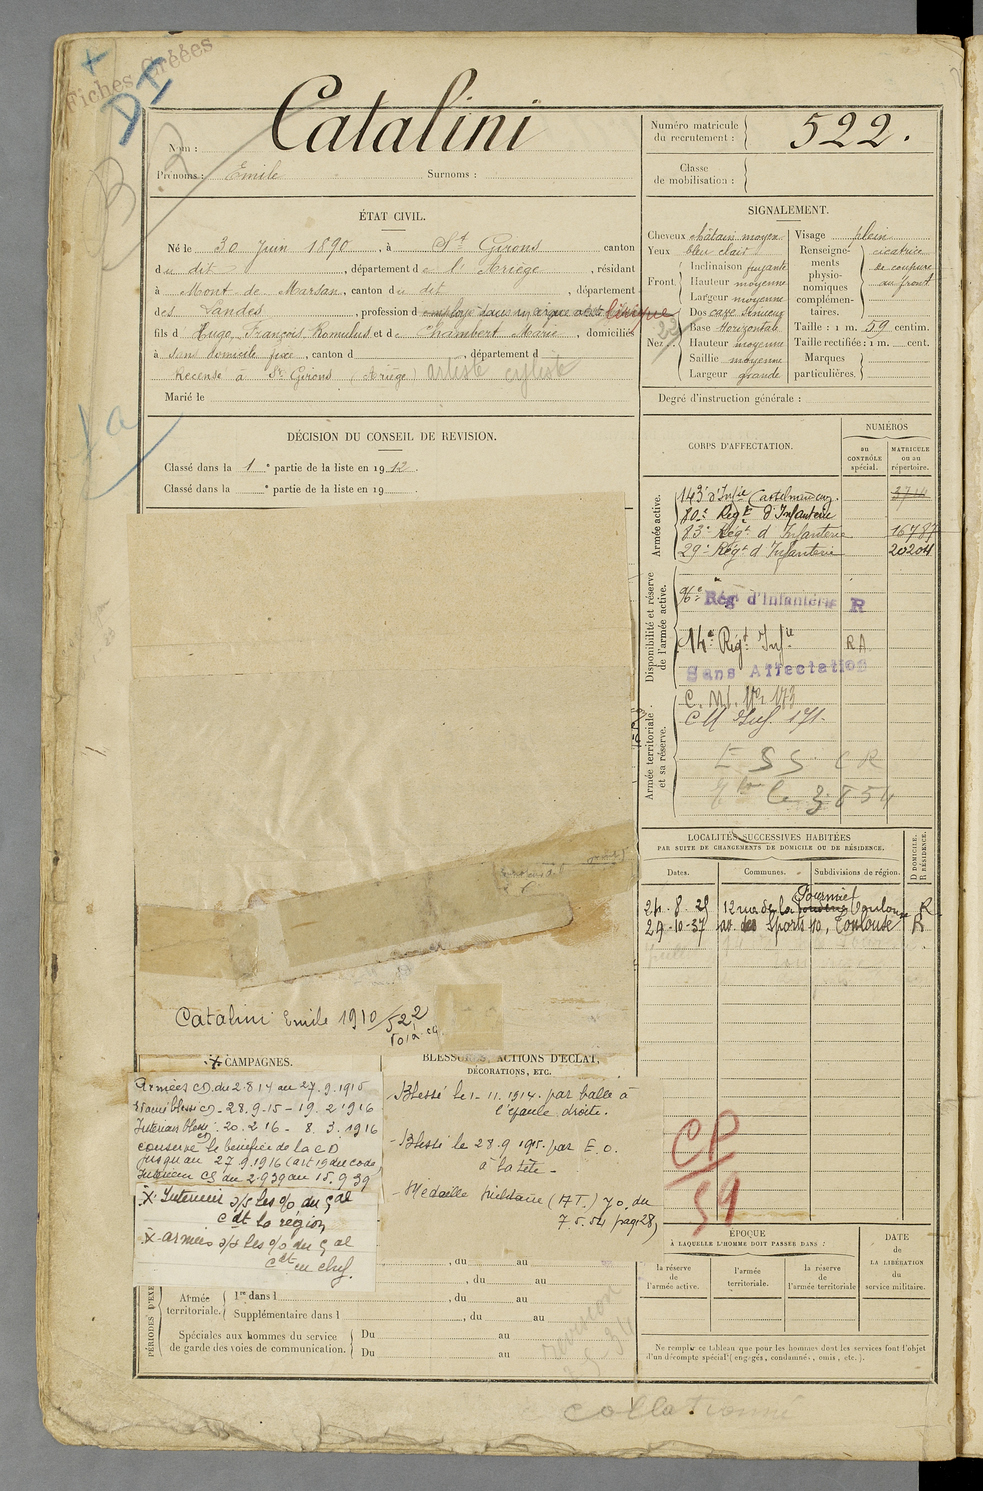 Fiches Créées
DI
Catalini
Nom :
Prénoms : Emile Surnoms :
Numéro matricule du recrutement : 522.
Classe de mobilisation :
ÉTAT CIVIL.
Né le 30 Juin 1890, à St Girons canton
du dit, département de l'Ariège, résidant
à Mont de Marsan, canton du dit, département
des Landes, profession d employé dans un cirque
fils d Hugo, François, Romulus et de Chambert Marie, domiciliés
à sans domicile fixe, canton d , département d
Recensé à St Girons (Ariège) artiste cycliste
Marié le
SIGNALEMENT.
Cheveux châtain moyen
Yeux bleu clair
Front. Inclinaison fuyante
Hauteur moyenne
Largeur moyenne
Nez. Dos cave sinueux
Base Horizontale
Hauteur moyenne
Saillie moyenne
Largeur grande
Visage plein
Renseignements physionomiques complémentaires. cicatrice de coupure au front
Taille : 1 m. 59 centim.
Taille rectifiée : 1 m. cent.
Marques particulières.
Degré d'instruction générale :
DÉCISION DU CONSEIL DE REVISION.
Classé dans la 1e partie de la liste en 1912.
Classé dans la e partie de la liste en 19
CORPS D'AFFECTATION.
NUMÉROS
au CONTRÔLE spécial.
MATRICULE ou au répertoire.
Armée active.
143e d'Infie Castelnaudary.
80e Régt d'Infanterie
83e Régt d Infanterie 16787
29e Régt d Infanterie 20204
Disponibilité et réserve de l'armée active.
96e Rég d'Infanterie R
14e Régt Infie RA
Sans Affectation
Armée territoriale et sa réserve.
C. M. I. No 173
CM Inf. 171.
LOCALITÉS SUCCESSIVES HABITÉES
PAR SUITE DE CHANGEMENTS DE DOMICILE OU DE RÉSIDENCE.
D DOMICILE.
R RÉSIDENCE.
Dates. Communes. Subdivisions de région.
24. 8. 28 12 rue de la Toulouse R
29-10-37 av. des Sports 40, Toulouse R
Catalini Emile 1910/522
CAMPAGNES.
Armées CD. du 2 8 14 au 27.9.1915
28.9.15 - 19.2 1916
Intérieur blessé : 20.2 16 - 8. 3. 1916
conserve le bénéfice de la CD
jusqu'au 27 9.1916 (art 19 du code)
Intérieur CS du 2 9 39 au 15.9 39
Intérieur s/s les o/o du Gal
Cdt la région
armées s/s les o/o du Gal
Cdt en chef.
BLESSURES, ACTIONS D'ÉCLAT,
DÉCORATIONS, ETC.
Blessé le 1-11.1914. par balle à
l'épaule droite.
- Blessé le 28.9 1915. par E. O.
à la tête -
- Médaille militaire (A T.) J o. du
CP
59
, du au
, du au
PÉRIODES D'EXE
Armée territoriale. 1re dans l , du au
Supplémentaire dans l , du au
Spéciales aux hommes du service de garde des voies de communication. Du au
Du au
ÉPOQUE
À LAQUELLE L'HOMME DOIT PASSER DANS :
la réserve de l'armée active.
l'armée territoriale.
la réserve de l'armée territoriale
DATE de LA LIBÉRATION du service militaire.
Ne remplir ce tableau que pour les hommes dont les services font l'objet
d'un décompte spécial (engagés, condamnés, omis, etc.).
collationné